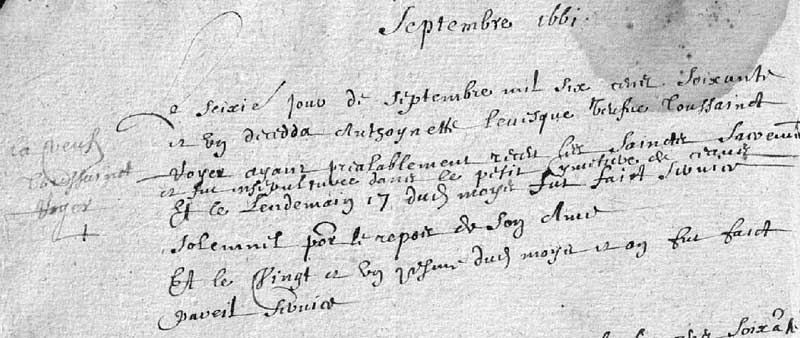 Septembre 1661.
Le seixie jour de Septembre mil six cens soixante
et un decedda Anthoynette Levesque Veufve Toussainct
Voyer ayant prealablement receu les Saincts Sacremens
et fut insepulturee dans le petit cymetiere de ceans
Et le Lendemain 17 dud moys fut faict Service
Solemnel por le repos de son Ame
Et le Vingt et un du moys et an fut faict
pareil Service
la Veufve
Toussainct
Voyer